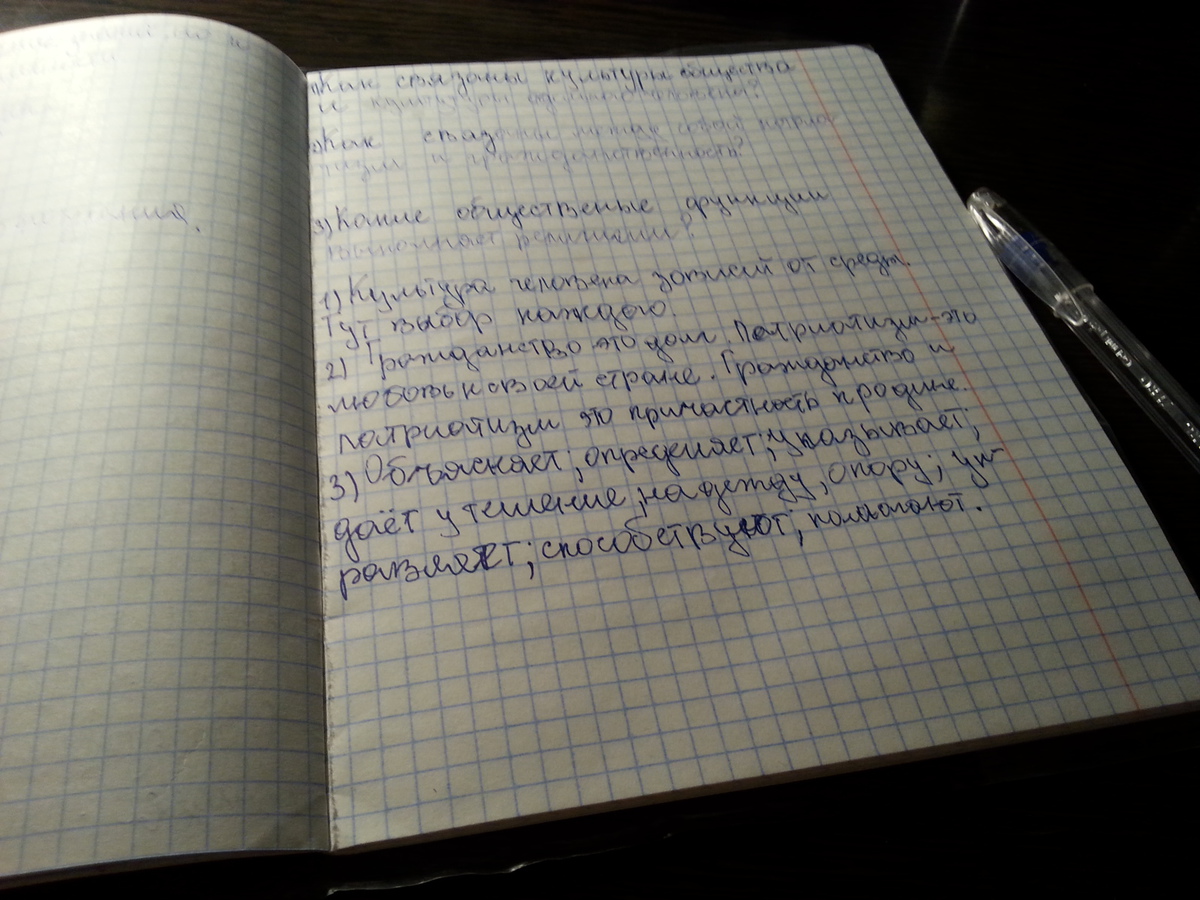 1) Как связаны культуры общества
и культуры
2) Как связаны между собой патрио-
тизм и гражданственность?
3) Какие общественые функции
выполняет религии?
1) Культура человека зависит от среды.
Тут выбор каждого.
2) Гражданство это долг. Патриотизм-это
любовь к своей стране. Гражданство и
патриотизм это причастность к родине.
3) Объясняет; определяет; указывает;
даёт утешение, надежду, опору; уп-
равляет; способствуют; помогают.